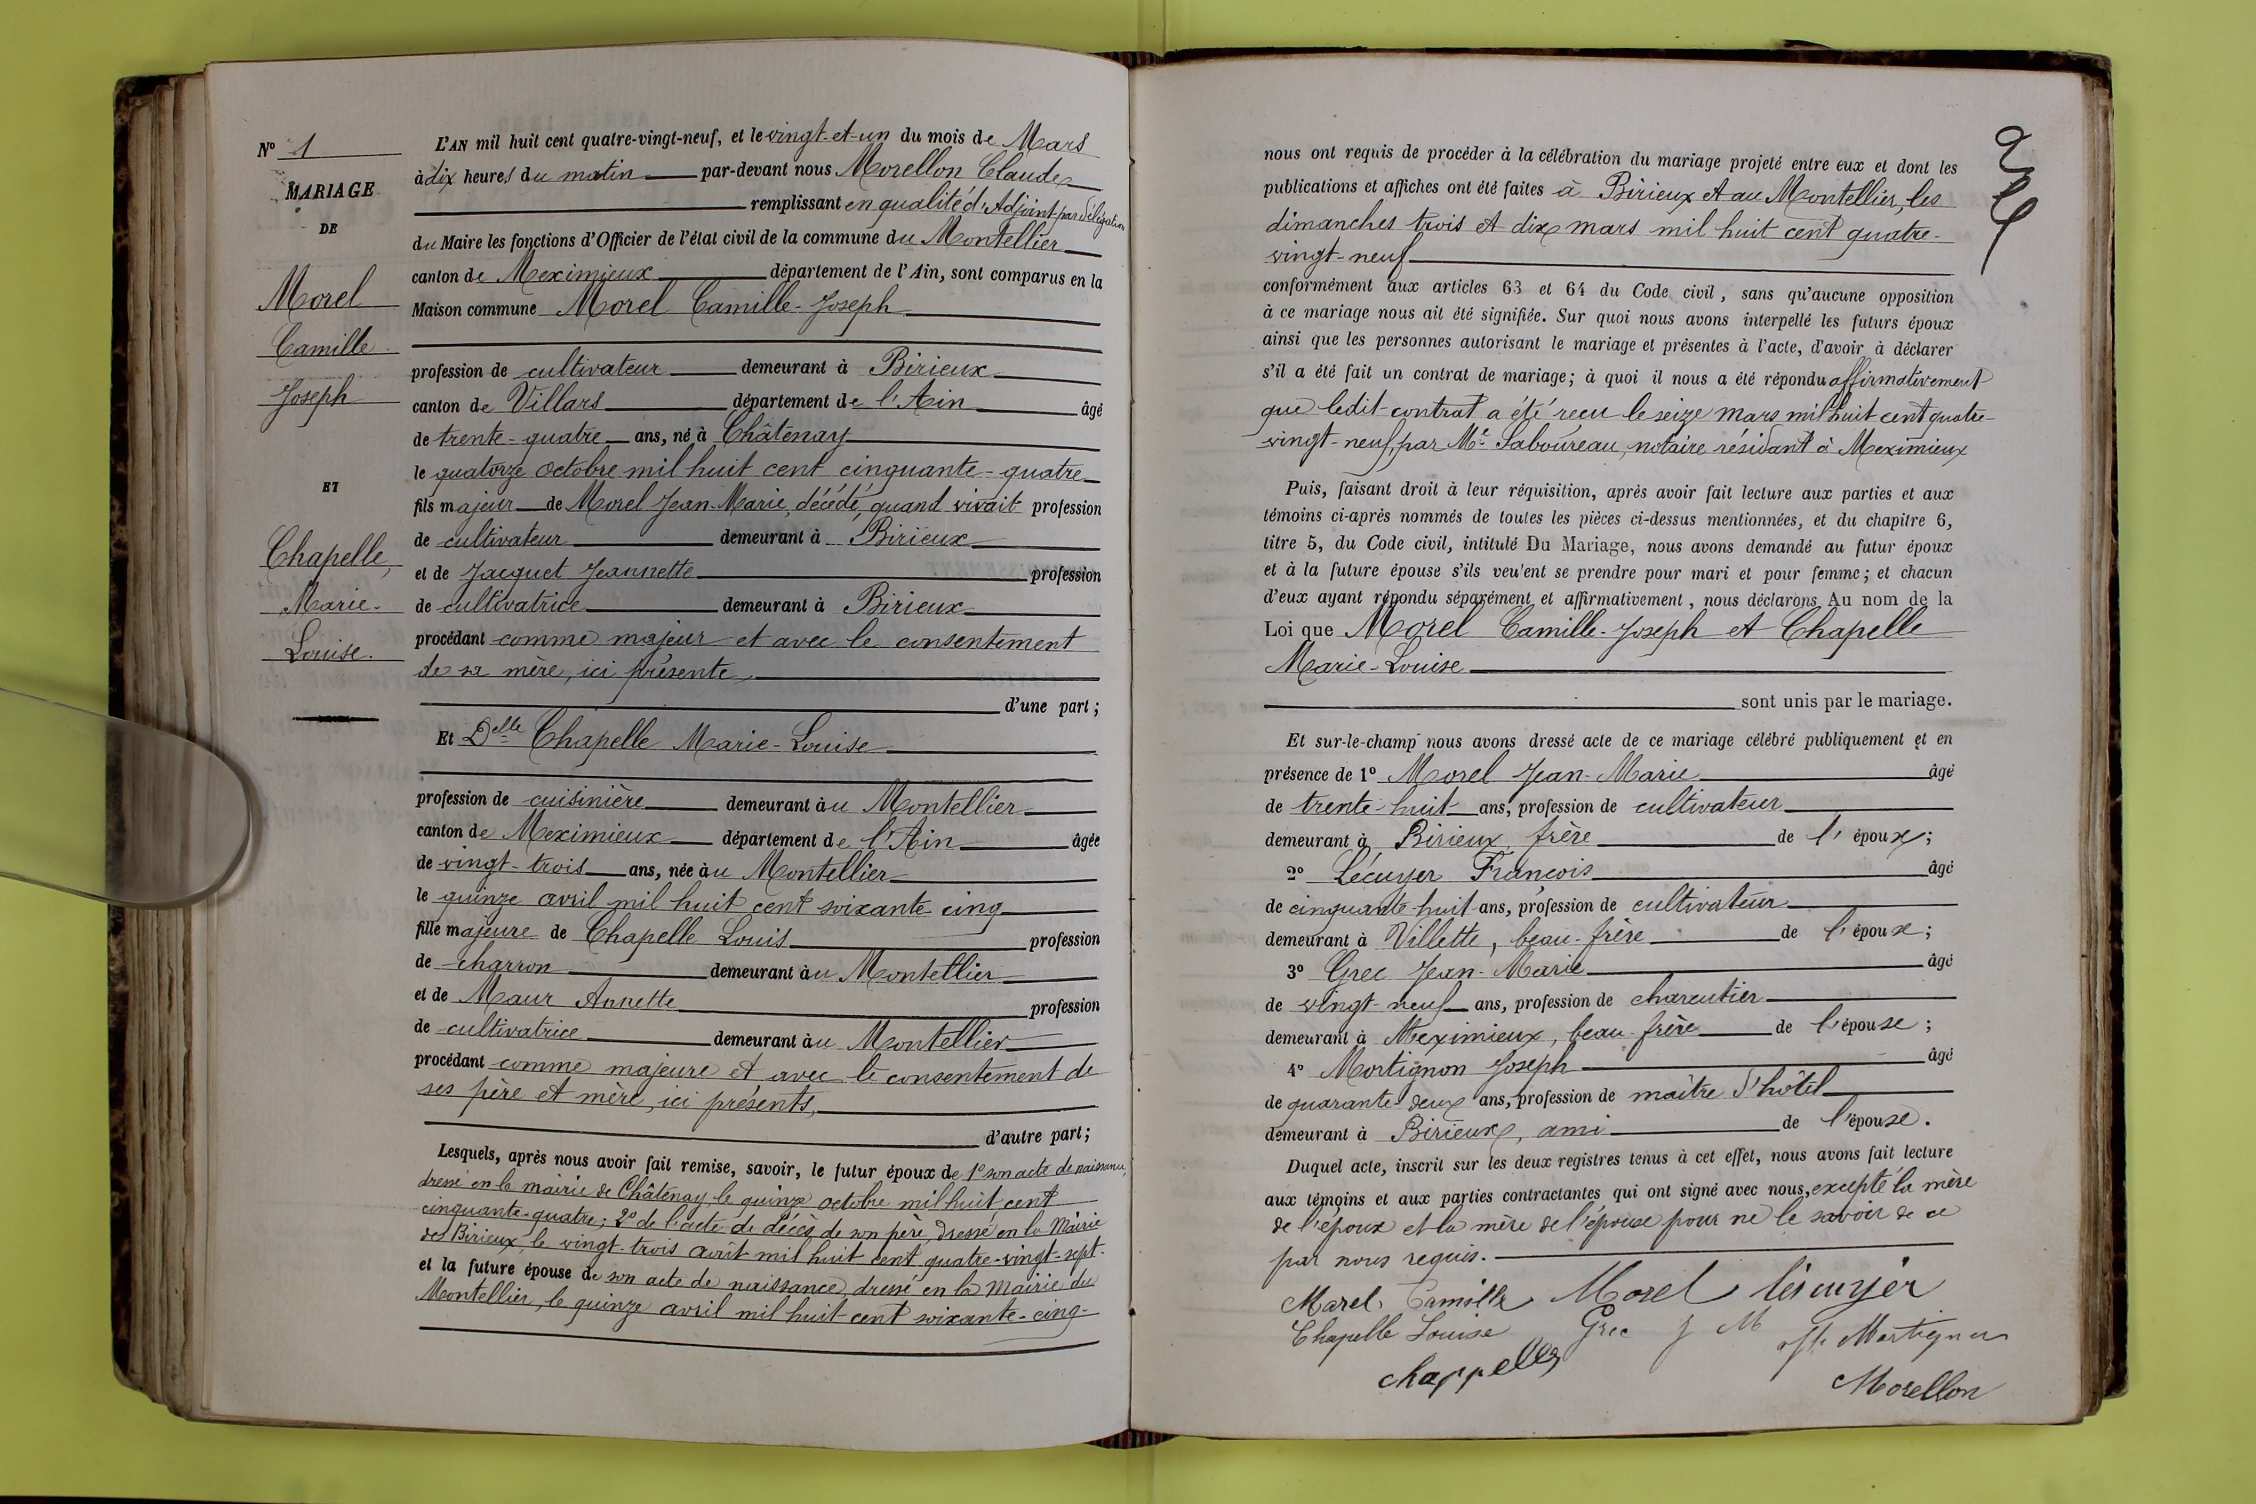 N° 1
MARIAGE
DE
Morel
Camille
Joseph
ET
Chapelle,
Marie-
Louise.
L'AN mil huit cent quatre-vingt-neuf, et le vingt-et-un du mois de Mars
à dix heures du matin par-devant nous Morellon Claude
remplissant en qualité d'Adjoint par délégation
du Maire les fonctions d'Officier de l'état civil de la commune du Montellier
canton de Meximieux département de l'Ain, sont comparus en la
Maison commune Morel Camille-Joseph
profession de cultivateur demeurant à Birieux
canton de Villars département de l'Ain âgé
de trente-quatre ans, né à Châtenay
le quatorze octobre mil huit cent cinquante-quatre
fils majeur de Morel Jean-Marie, décédé, quand vivait profession
de cultivateur demeurant à Birieux
et de Jacquet Jeannette profession
de cultivatrice demeurant à Birieux
procédant comme majeur et avec le consentement
de sa mère, ici présente,
d'une part;
Et Delle Chapelle Marie-Louise
profession de cuisinière demeurant au Montellier
canton de Meximieux département de l'Ain âgée
de vingt-trois ans, née au Montellier
le quinze avril mil huit cent soixante-cinq
fille majeure de Chapelle Louis profession
de charron demeurant au Montellier
et de Maur Annette profession
de cultivatrice demeurant au Montellier
procédant comme majeure et avec le consentement de
ses père et mère, ici présents,
d'autre part;
Lesquels, après nous avoir fait remise, savoir, le futur époux de 1° son acte de naissance,
dressé en la mairie de Châtenay le quinze octobre mil huit cent
cinquante-quatre; 2° de l'acte de décès de son père, dressé en la Mairie
de Birieux le vingt-trois avril mil huit cent quatre-vingt-sept.
et la future épouse de son acte de naissance, dressé en la Mairie du
Montellier, le quinze avril mil huit cent soixante-cinq-
nous ont requis de procéder à la célébration du mariage projeté entre eux et dont les
publications et affiches ont été faites à Birieux et au Montellier, les
dimanches trois et dix mars mil huit cent quatre-
vingt-neuf
conformément aux articles 63 et 64 du Code civil, sans qu'aucune opposition
à ce mariage nous ait été signifiée. Sur quoi nous avons interpellé les futurs époux
ainsi que les personnes autorisant le mariage et présentes à l'acte, d'avoir à déclarer
s'il a été fait un contrat de mariage; à quoi il nous a été répondu affirmativement
que ledit contrat a été reçu le seize mars mil huit cent quatre-
vingt-neuf, par Me Saboureau, notaire résidant à Meximieux
Puis, faisant droit à leur réquisition, après avoir fait lecture aux parties et aux
témoins ci-après nommés de toutes les pièces ci-dessus mentionnées, et du chapitre 6,
titre 5, du Code civil, intitulé Du Mariage, nous avons demandé au futur époux
et à la future épouse s'ils veu'ent se prendre pour mari et pour femme; et chacun
d'eux ayant répondu séparément et affirmativement, nous déclarons Au nom de la
Loi que Morel Camille-Joseph et Chapelle
Marie-Louise
sont unis par le mariage.
Et sur-le-champ nous avons dressé acte de ce mariage célébré publiquement et en
présence de 1° Morel Jean-Marie âgé
de trente-huit ans, profession de cultivateur
demeurant à Birieux frère de l'époux;
2° Lécuyer François âgé
de cinquante-huit ans, profession de cultivateur
demeurant à Villette, beau-frère de l'épouse;
3° Grec Jean-Marie âgé
de vingt-neuf ans, profession de charcutier
demeurant à Meximieux, beau-frère de l'épouse;
4° Mortignon Joseph âgé
de quarante-deux ans, profession de maître d'hôtel
demeurant à Birieux, ami de l'épouse.
Duquel acte, inscrit sur les deux registres tenus à cet effet, nous avons fait lecture
aux témoins et aux parties contractantes qui ont signé avec nous, excepté la mère
de l'époux et la mère de l'épouse pour ne le savoir de ce
par nous requis.
Morel Camille Morel Lécuyer
Chapelle Louise Grec J M Mortignon
Chappelle
Morellon